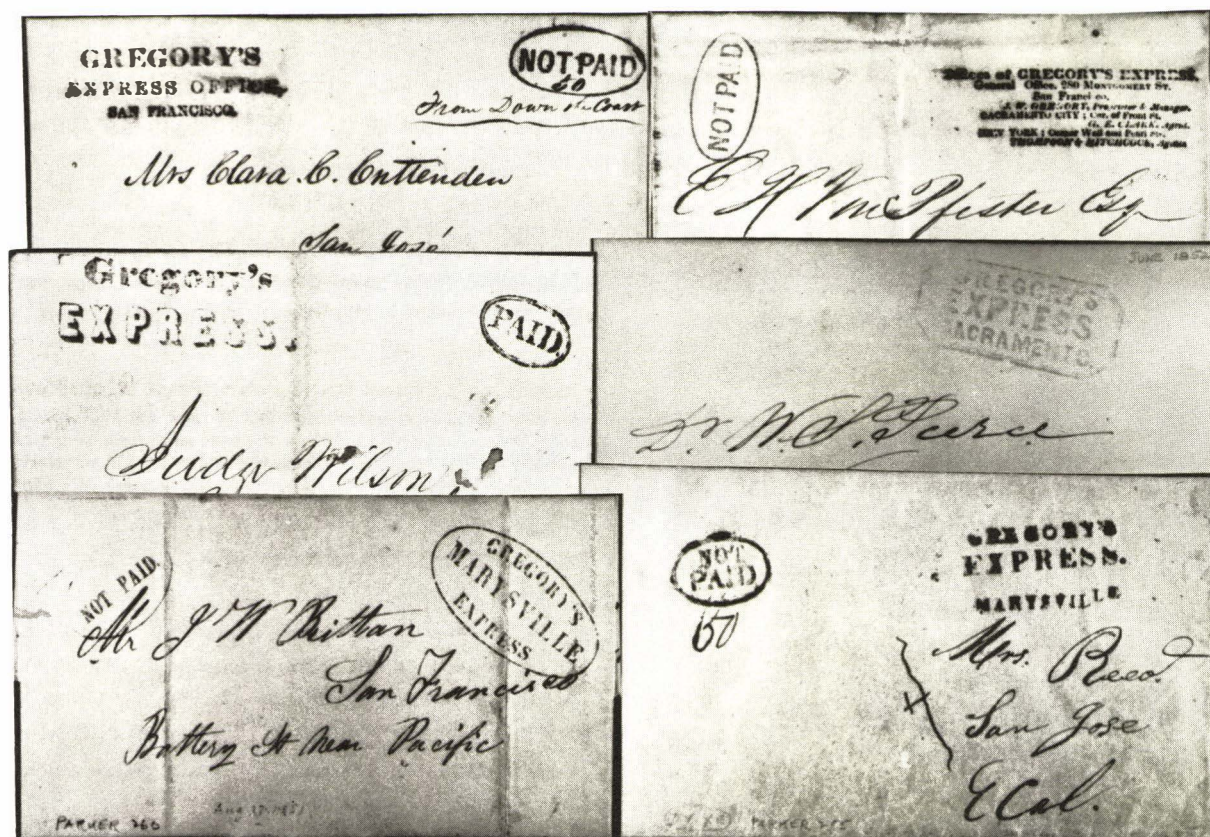 GREGORY'S
EXPRESS OFFICE,
SAN FRANCISCO.
NOT PAID
50
From Down the Coast
Mrs Clara. C. Crittenden
San José
NOT PAID
Offices of GREGORY'S EXPRESS,
General Office, 280 MONTGOMERY ST.
San Francisco.
J. W. GREGORY, Proprietor & Manager.
SACRAMENTO CITY; Cor. of Front St.
NEW YORK; Corner Wall and Pearl Sts.
THOMPSON & HITCHCOCK, Agents
E H Von Pfister Esq
Gregory's
EXPRESS.
PAID.
Wilson
JUNE 1852
GREGORY'S
EXPRESS
SACRAMENTO.
Dr. W. S. Peerce
NOT PAID.
GREGORY'S
MARYSVILLE
EXPRESS
Mr J W Brittan
San Francisco
Battery St Near Pacific
PARKER 260
NOT
PAID
50
GREGORY'S
EXPRESS.
MARYSVILLE
Mrs. Reed
San Jose
Cal.
PARKER